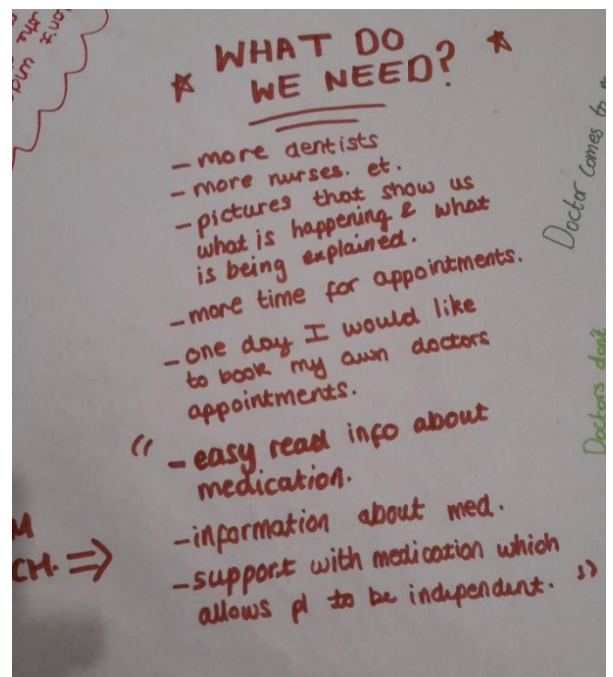 WHAT DO
WE NEED?
- more dentists
- more nurses. et.
- pictures that show us
what is happening & what
is being explained.
- more time for appointments.
- one day I would like
to book my own doctors
appointments.
" - easy read info about
medication.
- information about med.
CH. ⇒
- support with medication which
allows pl to be independent. "
Doctor comes to
Doctors don't